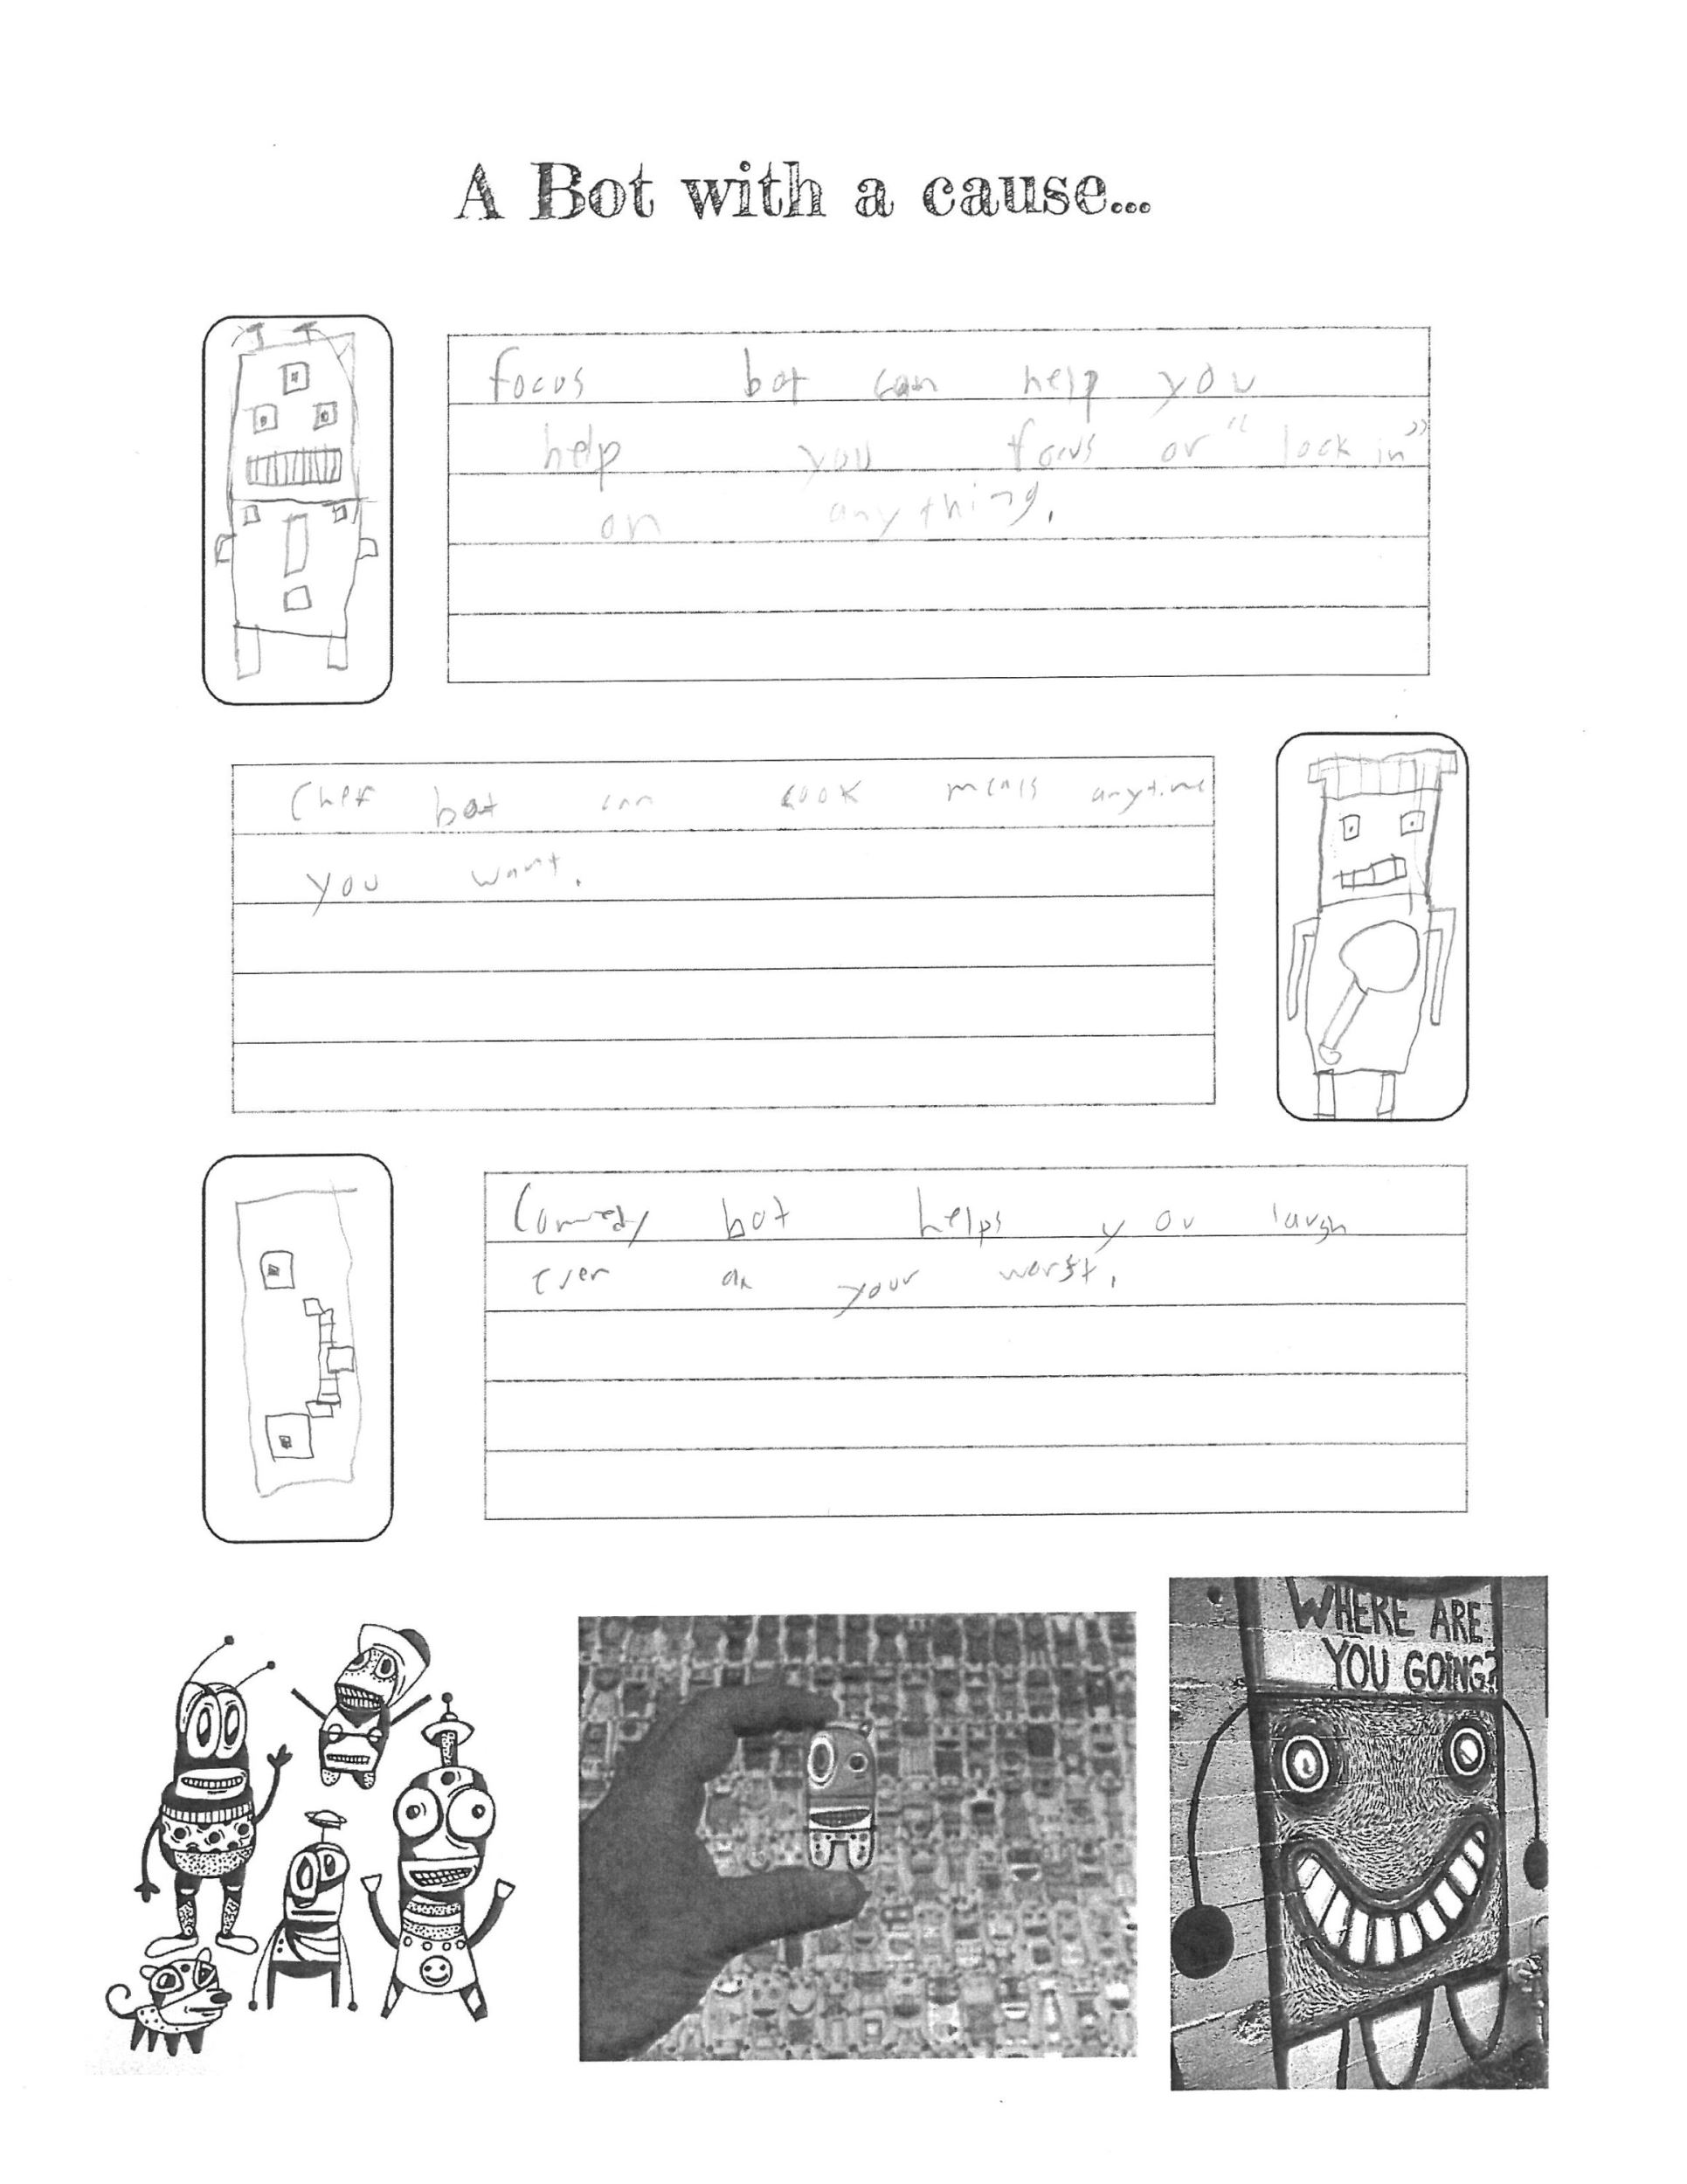 A Bot with a cause...
focus bot can help you
help you focus or "lock in"
on anything.
Chef bot can cook meals anytime
you want.
Comedy bot helps you laugh
even on your worst.
WHERE ARE
YOU GOING?